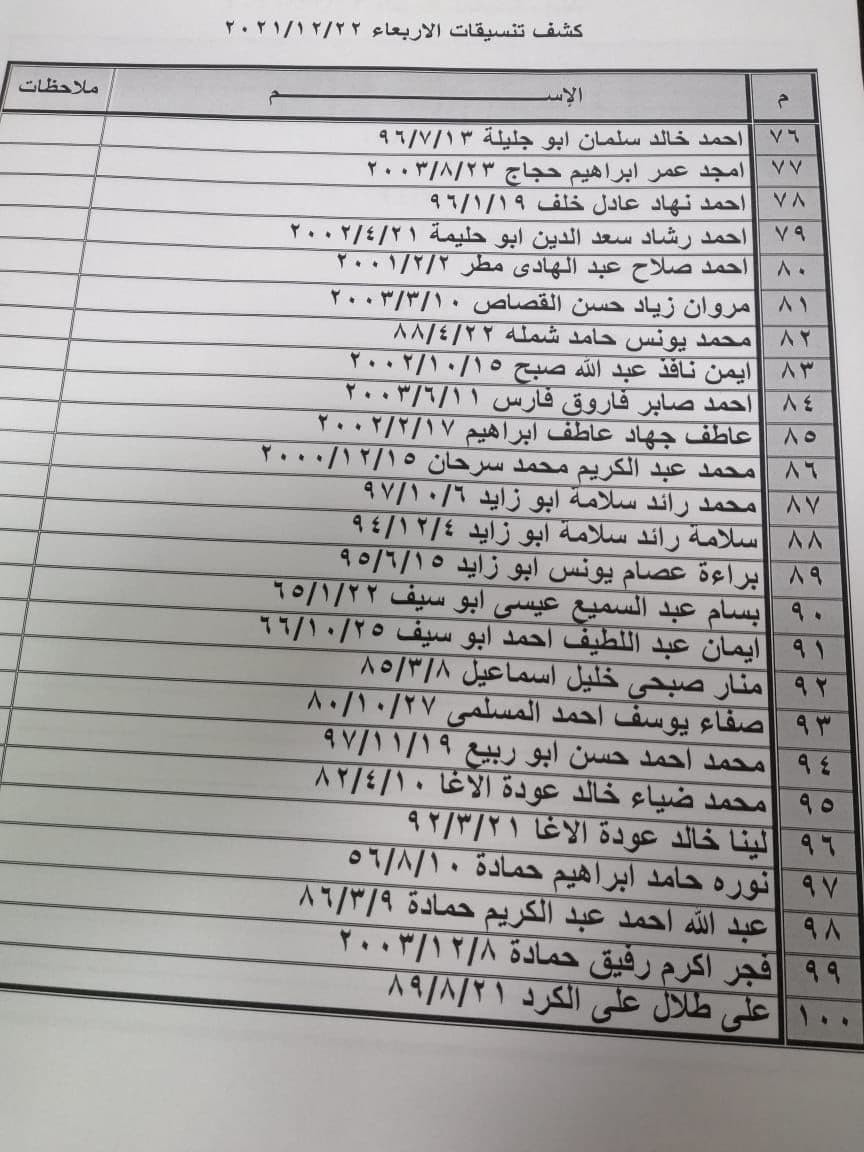 كشف تنسيقات الاربعاء ٢٠٢١/١٢/٢٢
م الإســـــــــم ملاحظات
٧٦ احمد خالد سلمان ابو جليلة ٩٦/٧/١٣
٧٧ امجد عمر ابراهيم حجاج ٢٠٠٣/٨/٢٣
٧٨ احمد نهاد عادل خلف ٩٦/١/١٩
٧٩ احمد رشاد سعد الدين ابو حليمة ٢٠٠٢/٤/٢١
٨٠ احمد صلاح عبد الهادى مطر ٢٠٠١/٢/٢
٨١ مروان زياد حسن القصاص ٢٠٠٣/٣/١٠
٨٢ محمد يونس حامد شمله ٨٨/٤/٢٢
٨٣ ايمن نافذ عبد الله صبح ٢٠٠٢/١٠/١٥
٨٤ احمد صابر فاروق فارس ٢٠٠٣/٦/١١
٨٥ عاطف جهاد عاطف ابراهيم ٢٠٠٢/٢/١٧
٨٦ محمد عبد الكريم محمد سرحان ٢٠٠٠/١٢/١٥
٨٧ محمد رائد سلامة ابو زايد ٩٧/١٠/٦
٨٨ سلامة رائد سلامة ابو زايد ٩٤/١٢/٤
٨٩ براءة عصام يونس ابو زايد ٩٥/٦/١٥
٩٠ بسام عبد السميع عيسى ابو سيف ٦٥/١/٢٢
٩١ ايمان عبد اللطيف احمد ابو سيف ٦٦/١٠/٢٥
٩٢ منار صبحى خليل اسماعيل ٨٥/٣/٨
٩٣ صفاء يوسف احمد المسلمى ٨٠/١٠/٢٧
٩٤ محمد احمد حسن ابو ربيع ٩٧/١١/١٩
٩٥ محمد ضياء خالد عودة الاغا ٨٢/٤/١٠
٩٦ لينا خالد عودة الاغا ٩٢/٣/٢١
٩٧ نوره حامد ابراهيم حمادة ٥٦/٨/١٠
٩٨ عبد الله احمد عبد الكريم حمادة ٨٦/٣/٩
٩٩ فجر اكرم رفيق حمادة ٢٠٠٣/١٢/٨
١٠٠ على طلال على الكرد ٨٩/٨/٢١